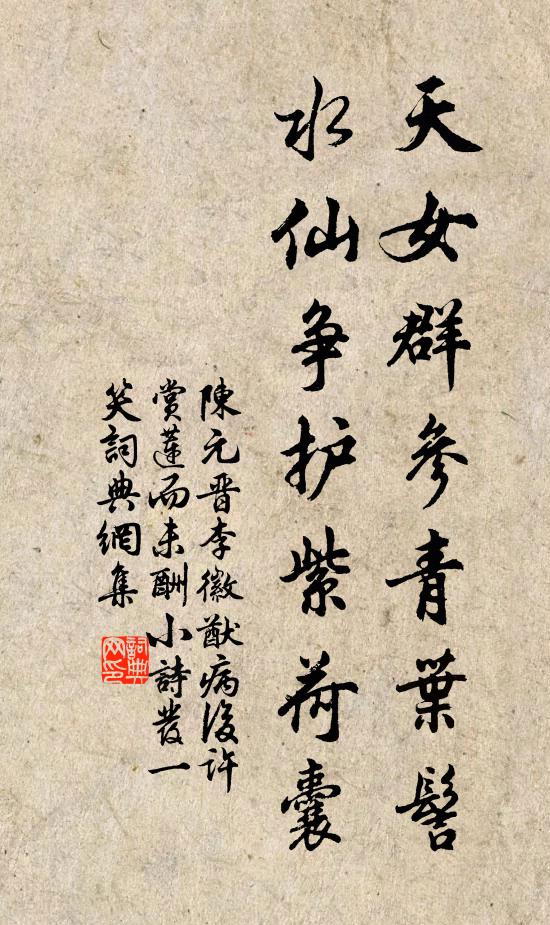 天女群參青葉髻
水仙争护紫荷囊
陳元晋李徽猷病後许
赏蓮而未酬小詩發一
笑詞典網集
詞典
网印